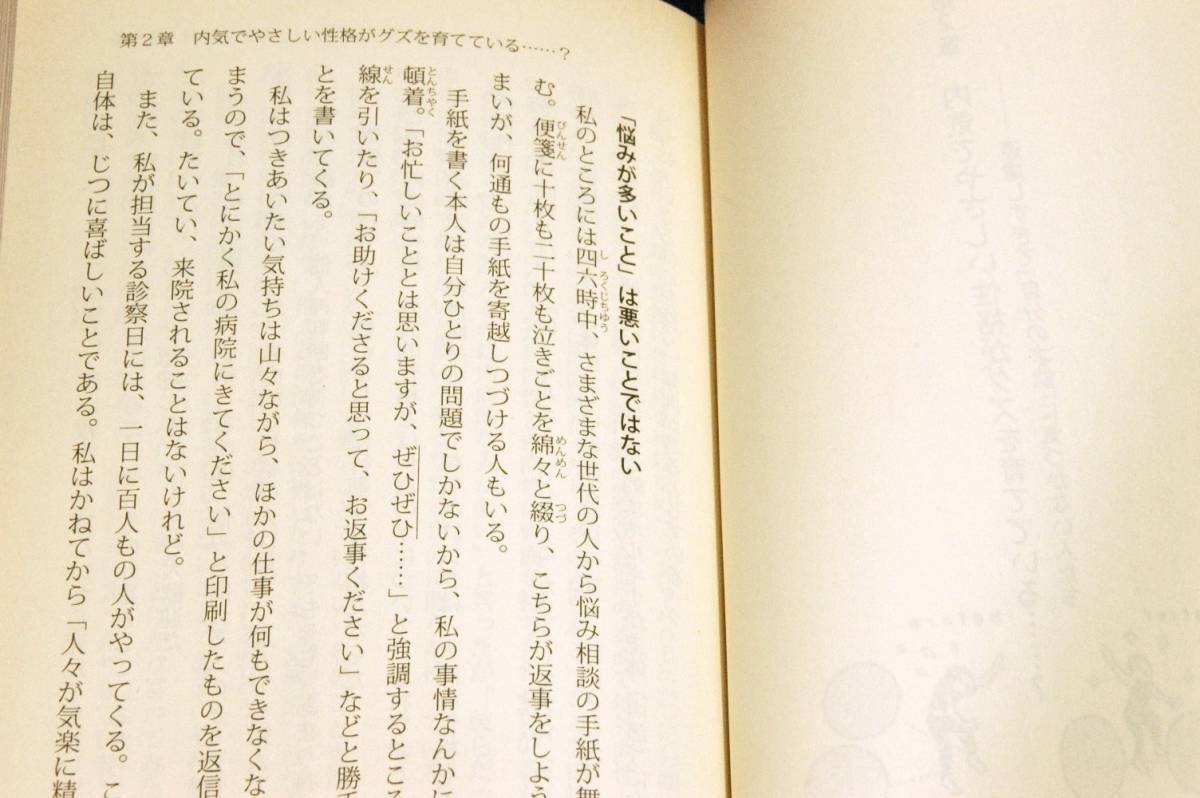 第2章 内気でやさしい性格がグズを育てている……?
「悩みが多いこと」は悪いことではない
私のところには四六時中、さまざまな世代の人から悩み相談の手紙が舞
む。便箋に十枚も二十枚も泣きごとを綿々と綴り、こちらが返事をしよう
まいが、何通もの手紙を寄越しつづける人もいる。
手紙を書く本人は自分ひとりの問題でしかないから、私の事情なんかに
頓着。「お忙しいこととは思いますが、ぜひぜひ……」と強調するところ
線を引いたり、「お助けくださると思って、お返事ください」などと勝手
とを書いてくる。
私はつきあいたい気持ちは山々ながら、ほかの仕事が何もできなくな
まうので、「とにかく私の病院にきてください」と印刷したものを返信
ている。たいてい、来院されることはないけれど。
また、私が担当する診察日には、一日に百人もの人がやってくる。こ
自体は、じつに喜ばしいことである。私はかねてから「人々が気楽に精